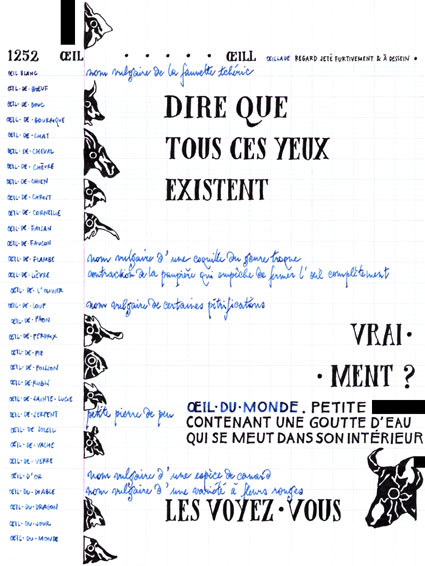 1252 ŒIL · · · · · ŒILL ŒILLADE REGARD JETÉ FURTIVEMENT & À DESSEIN.
ŒIL BLANC nom vulgaire de la fauvette tchéric
ŒIL·DE·BŒUF
ŒIL·DE·BOUC
ŒIL·DE·BOURRIQUE
ŒIL·DE·CHAT
ŒIL·DE·CHEVAL
ŒIL·DE·CHÈVRE
ŒIL·DE·CHIEN
ŒIL·DE·CHRIST
ŒIL·DE·CORNEILLE
ŒIL·DE·FAISAN
ŒIL·DE·FAUCON
DIRE QUE
TOUS CES YEUX
EXISTENT
ŒIL·DE·FLAMBE nom vulgaire d'une coquille du genre troque
ŒIL·DE·LIÈVRE contraction de la paupière qui empêche de fermer l'œil complètement
ŒIL·DE·L'OLIVIER
ŒIL·DE·LOUP nom vulgaire de certaines pétrifications
ŒIL·DE·PAON
ŒIL·DE·PERDRIX
ŒIL·DE·PIE
ŒIL·DE·POISSON
ŒIL·DE·RUBIS
VRAI·
·MENT ?
ŒIL·DE·SAINTE·LUCIE
ŒIL·DE·SERPENT petite pierre de peu
ŒIL·DE·SOLEIL
ŒIL·DE·VACHE
ŒIL·DE·VERRE
ŒIL·DU·MONDE. PETITE
CONTENANT UNE GOUTTE D'EAU
QUI SE MEUT DANS SON INTÉRIEUR
ŒIL·D'OR nom vulgaire d'une espèce de canard
ŒIL·DU·DIABLE nom vulgaire d'une variété à fleurs rouges
ŒIL·DU·DRAGON
ŒIL·DU·JOUR
ŒIL·DU·MONDE
LES VOYEZ·VOUS